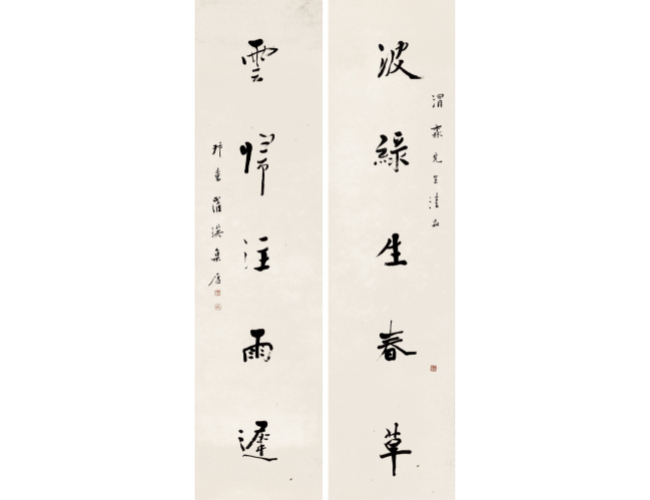 渭霖先生
波綠生春草
雲歸注雨遲
集唐